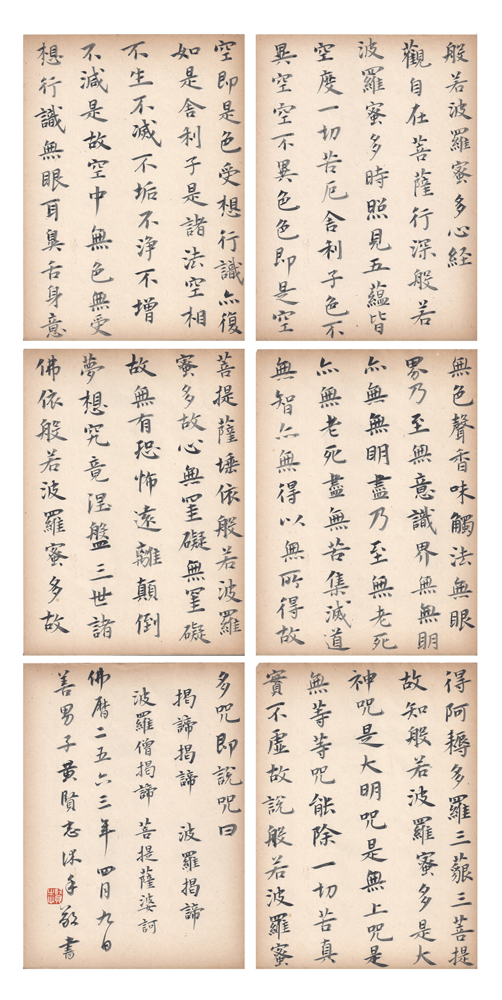 般若波羅蜜多心経
觀自在菩薩行深般若
波羅蜜多時照見五蘊皆
空度一切苦厄舍利子色不
異空空不異色色即是空
空即是色受想行識亦復
如是舍利子是諸法空相
不生不滅不垢不淨不增
不減是故空中無色無受
想行識無眼耳鼻舌身意
無色聲香味觸法無眼
界乃至無意識界無無明
亦無無明盡乃至無老死
亦無老死盡無苦集滅道
無智亦無得以無所得故
菩提薩埵依般若波羅
蜜多故心無罣礙無罣礙
故無有恐怖遠離顛倒
夢想究竟涅盤三世諸
佛依般若波羅蜜多故
得阿耨多羅三藐三菩提
故知般若波羅蜜多是大
神咒是大明咒是無上咒是
無等等咒能除一切苦真
實不虛故說般若波羅蜜
多咒即說咒曰
揭諦揭諦 波羅揭諦
波羅僧揭諦 菩提薩婆訶
佛曆二五六三年四月九日
善男子黃賢志沐手敬書